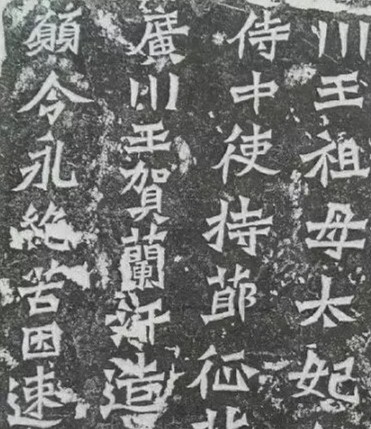 川王祖母太妃
侍中使持莭征
廣川王賀蘭汗造
願令永絶苦因速